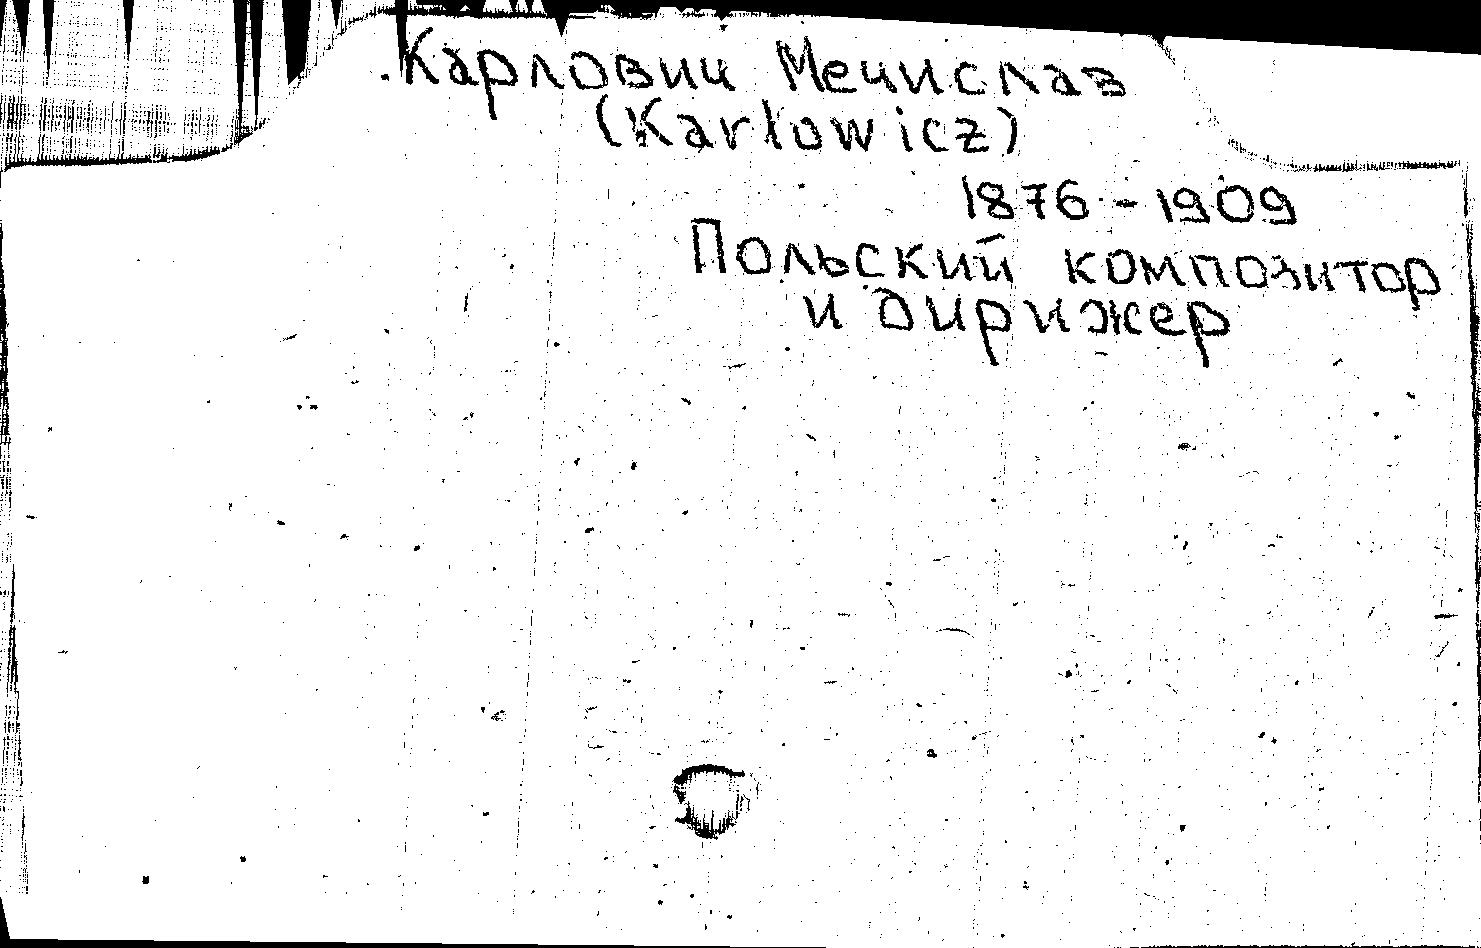 Карлович Мечислав
(Karłowicz)
1876 - 1909
Польский композитор
и дирижер